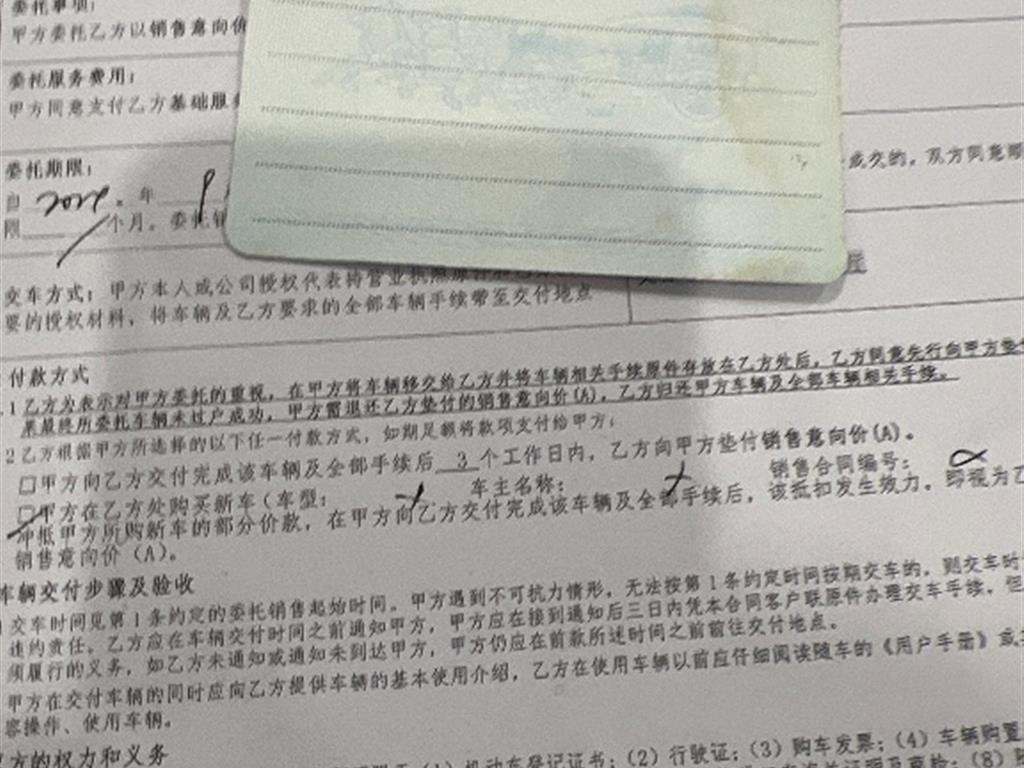 委托事项：
甲方委托乙方以销售意向价
委托服务费用：
甲方同意支付乙方基础服务
委托期限：
成交的，双方同意
自 年 9
限 个月。委托销
交车方式：甲方本人或公司授权代表持营业执照原件
要的授权材料，将车辆及乙方要求的全部车辆手续带至交付地点
付款方式
1 乙方为表示对甲方委托的重视，在甲方将车辆移交给乙方并将车辆相关手续原件存放在乙方处后，乙方同意先行向甲方垫付
果最终所委托车辆未过户成功，甲方需退还乙方垫付的销售意向价(A)，乙方归还甲方车辆及全部车辆相关手续。
2 乙方根据甲方所选择的以下任一付款方式，如期足额将款项支付给甲方：
□甲方向乙方交付完成该车辆及全部手续后 3 个工作日内，乙方向甲方垫付销售意向价(A)。
□甲方在乙方处购买新车（车型： 车主名称： 销售合同编号：
冲抵甲方所购新车的部分价款，在甲方向乙方交付完成该车辆及全部手续后，该抵扣发生效力，即视为乙
销售意向价（A）。
车辆交付步骤及验收
交车时间见第1条约定的委托销售起始时间。甲方遇到不可抗力情形，无法按第1条约定时间按期交车的，则交车时
违约责任。乙方应在车辆交付时间之前通知甲方，甲方应在接到通知后三日内凭本合同客户联原件办理交车手续。但
须履行的义务，如乙方未通知或通知未到达甲方，甲方仍应在前款所述时间之前前往交付地点。
甲方在交付车辆的同时应向乙方提供车辆的基本使用介绍，乙方在使用车辆以前应仔细阅读随车的《用户手册》或
容操作、使用车辆。
方的权力和义务
（1）机动车登记证书；（2）行驶证；（3）购车发票；（4）车辆购置
（8）